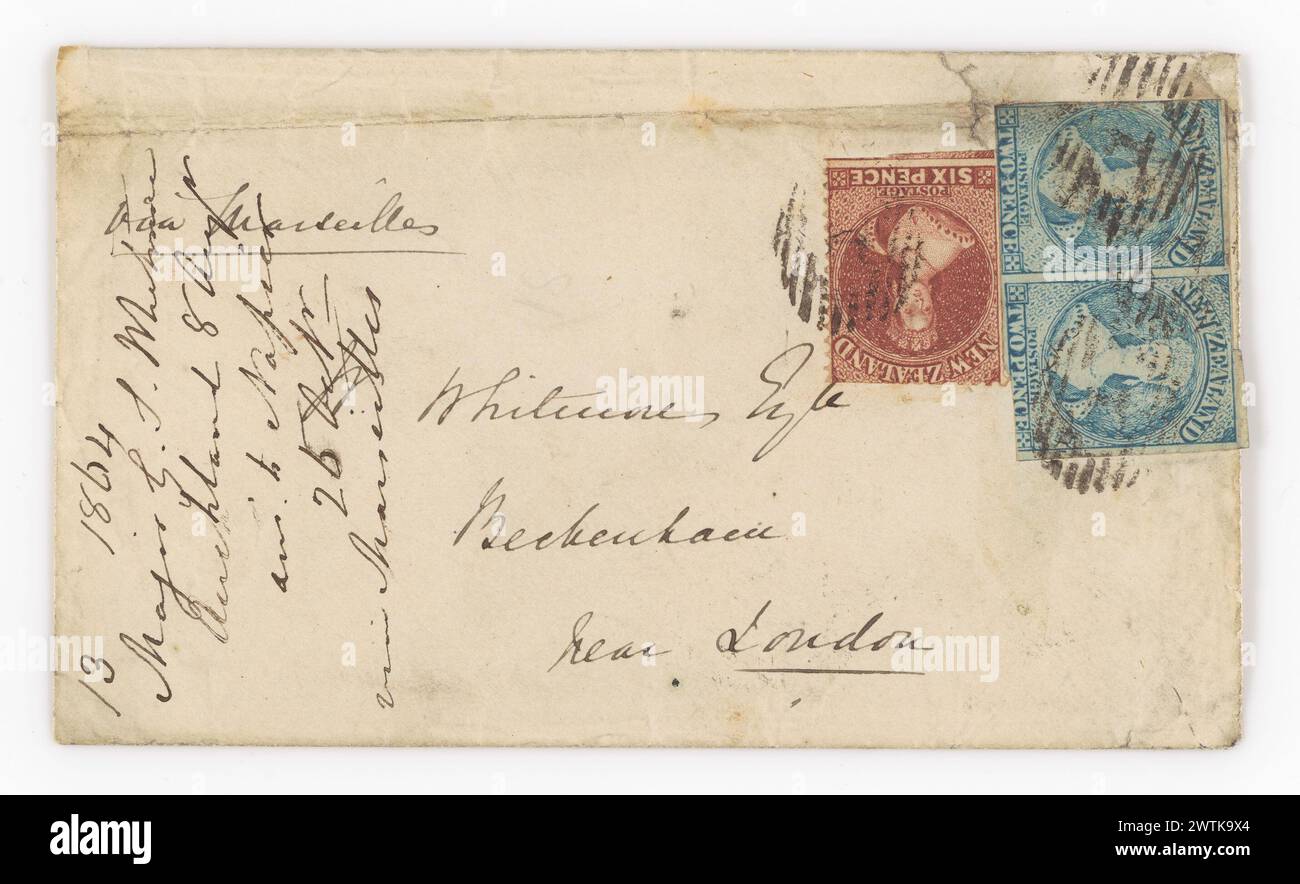 via Marseilles
Whitmore Esqre
Beckenham
near London
13 1864
Major G. S. Whitmore
Auckland 8
and to Napier
25
via Marseilles
SIX PENCE
POSTAGE
NEW ZEALAND
TWO PENCE
POSTAGE
NEW ZEALAND
TWO PENCE
POSTAGE
NEW ZEALAND
alamy
Image ID: 2WTK9X4
www.alamy.com